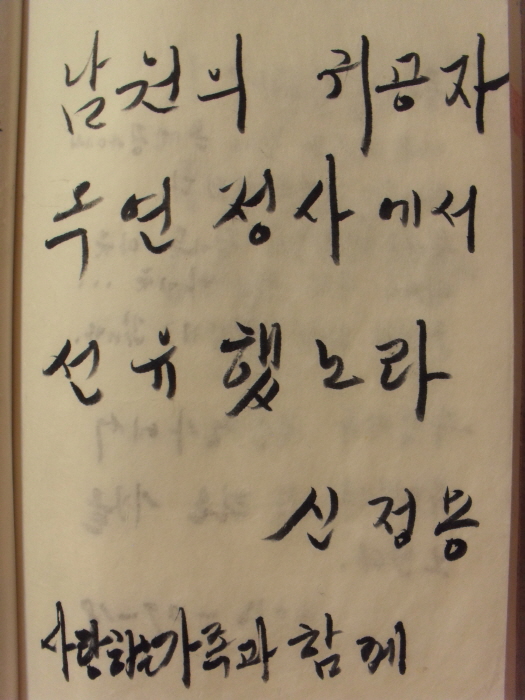 남원의 귀공자
옥연 정사에서
선유했노라
신정용
사랑하는 가족과 함께